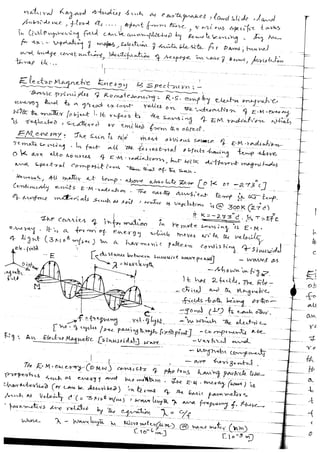 natural Hazard studies such as earthquakes, land slide, land
subsidence, flood etc...., apart from these, various specific tasks
In Civil Engineering field can be accomplished by Remote Sensing.
for ex:- updating of maps, selection of suitable site for Dams, tunnel
and bridge constructions, Identification of seepage in case of dams,
Electro Magnetic Energy & Spectrum :-
Basic principles of Remote sensing. R.S. employ electro magnetic
energy and to a great extent relies on the interaction of E.M. energy
with the matter (object). It refers to the sensing of EM radiation, which
is reflected, scattered or emitted from the object.
EM energy: The Sun is the most obvious source of EM-radiation
remote sensing. In fact all the terrestrial objects having temp above
0 K are also sources of EM-radiations, but with different magnitudes
and spectral composition than that of the Sun.
However, All matter at temp. above absolute zero [0K or -273°C]
continuously emits E.M-radiation. The earth's ambient temp
of various materials such as soil, water & vegetation is @ 300K (27°C)
The carrier of information in remote sensing is E.M.
energy. It is a form of energy which moves with the velocity
of light (3×10⁸ m/sec) in a harmonic pattern consisting of sinusoidal
waves as
[distance between successive wave peaks]
λ - wavelength
E
M
shown in fig.
It has 2 fields. The Elec-
trical and the Magnetic.
fields both being ortho-
gonal (⊥r) to each other.
in which the electric
components are
vertical and
Magnetic components
are horizontal
f = frequency
vel. of light
[no. of cycles/sec passing through fixed point]
Fig: An Electro Magnetic [sinusoidal] wave
The E.M. energy (EMR) consists of photons having particle like
properties such as energy and momentum. The E.M. energy (EMR) is
characterised (or can be described) in terms of the basic parameters
such as Velocity c (= 3×10⁸ m/s), wavelength λ and frequency f. These
parameters are related by the equation λ = c/f
where λ - wavelength in micrometers (mm) @ nano meter (nm)
[10⁻⁶m] [10⁻⁹m]